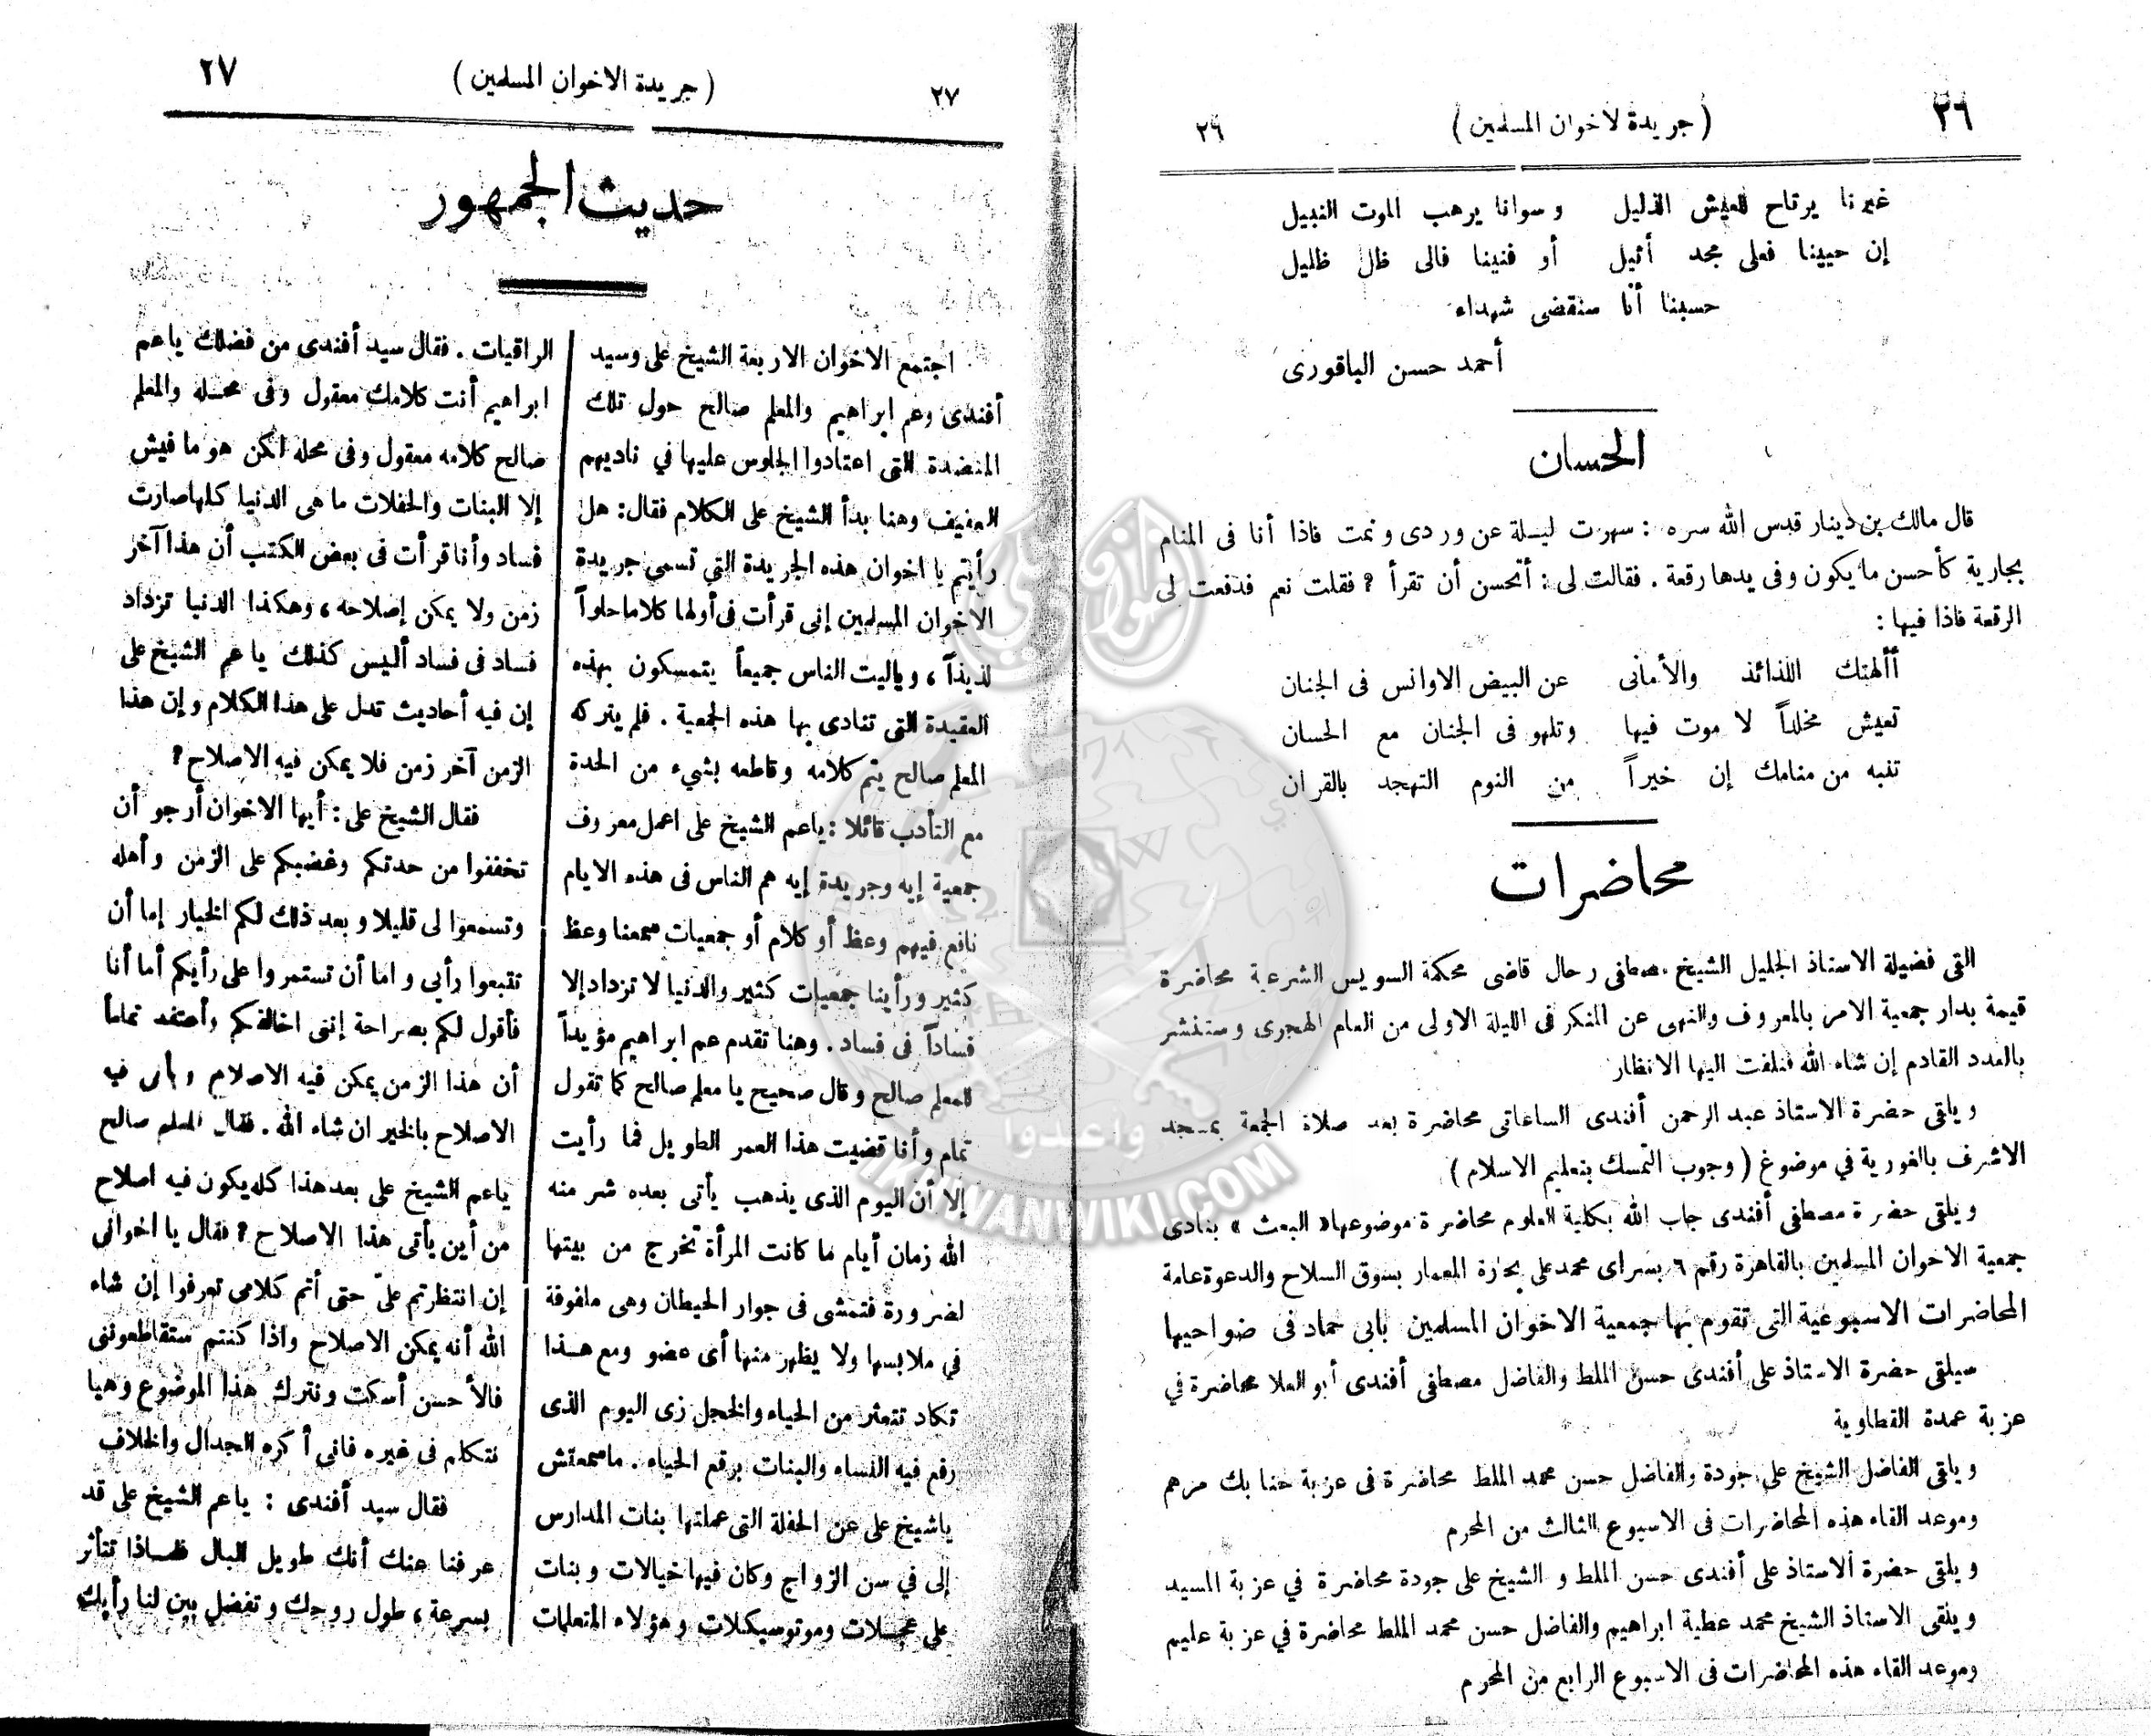 ٢٦
(جريدة لاخوان المسلمين)
٢٦
غيرنا يرتاح للعيش الذليل وسوانا يرهب الموت النبيل
إن حيينا فعلى مجد أثيل أو فنينا فالى ظل ظليل
حسبنا أنا سنقضى شهداء
أحمد حسن الباقورى
الحسان
قال مالك بن دينار قدس الله سره : سهرت ليلة عن وردى ونمت فاذا أنا فى المنام
بجارية كأحسن ما يكون وفى يدها رقعة . فقالت لى : أتحسن أن تقرأ ؟ فقلت نعم فدفعت لى
الرقعة فاذا فيها :
أألهتك اللذائذ والأمانى عن البيض الاوانس فى الجنان
تعيش مخلداً لا موت فيها وتلهو فى الجنان مع الحسان
تنبه من منامك إن خيراً من النوم التهجد بالقران
محاضرات
القى فضيلة الاستاذ الجليل الشيخ مصطفى رحال قاضى محكمة السويس الشرعية محاضرة
قيمة بدار جمعية الامر بالمعروف والنهى عن المنكر فى الليلة الاولى من العام الهجرى وستنشر
بالعدد القادم إن شاء الله فنلفت اليها الانظار
ويلقى حضرة الاستاذ عبد الرحمن أفندى الساعاتى محاضرة بعد صلاة الجمعة بمسجد
الاشرف بالغورية في موضوع ( وجوب التمسك بتعليم الاسلام )
ويلقى حضرة مصطفى أفندى جاب الله بكلية العلوم محاضرة موضوعها « البعث » بنادى
جمعية الاخوان المسلمين بالقاهرة رقم ٦ بسراى محمد على بحارة المعمار بسوق السلاح والدعوة عامة
المحاضرات الاسبوعية التى تقوم بها جمعية الاخوان المسلمين بابى حماد فى ضواحيها
سيلقى حضرة الاستاذ على أفندى حسن الملط والفاضل مصطفى أفندى أبو العلا محاضرة في
عزبة عمدة القطاوية
ويلقى الفاضل الشيخ على جودة والفاضل حسن محمد الملط محاضرة فى عزبة حنا بك مرهم
وموعد القاء هذه المحاضرات فى الاسبوع الثالث من المحرم
ويلقى حضرة الاستاذ على أفندى حسن الملط و الشيخ على جودة محاضرة في عزبة السيد
ويلقى الاستاذ الشيخ محمد عطية ابراهيم والفاضل حسن محمد الملط محاضرة في عزبة عليم
وموعد القاء هذه المحاضرات فى الاسبوع الرابع من المحرم
٢٧
(جريدة الاخوان المسلمين)
٢٧
حديث الجمهور
اجتمع الاخوان الاربعة الشيخ على وسيد
أفندى وعم ابراهيم والمعلم صالح حول تلك
المنضدة التى اعتادوا الجلوس عليها في ناديهم
العفيف وهنا بدأ الشيخ على الكلام فقال: هل
رأيتم يا اخوان هذه الجريدة التي تسمى جريدة
الاخوان المسلمين إنى قرأت فى أولها كلاما حلواً
لذيذاً ، وياليت الناس جميعاً يتمسكون بهذه
العقيدة التى تنادى بها هذه الجمعية . فلم يتركه
المعلم صالح يتم كلامه وقاطعه بشيء من الحدة
مع التأدب قائلا : ياعم الشيخ على اعمل معروف
جمعية إيه وجريدة إيه هم الناس فى هذه الايام
نافع فيهم وعظ أو كلام أو جمعيات سمعنا وعظ
كثير ورأينا جمعيات كثير والدنيا لا تزداد إلا
فساداً فى فساد . وهنا تقدم عم ابراهيم مؤيداً
للمعلم صالح وقال صحيح يا معلم صالح كما تقول
تمام وأنا قضيت هذا العمر الطويل فما رأيت
إلا أن اليوم الذى يذهب يأتى بعده شر منه
الله زمان أيام ما كانت المرأة تخرج من بيتها
لضرورة فتمشى فى جوار الحيطان وهى ملفوفة
في ملابسها ولا يظهر منها أى عضو ومع هذا
تكاد تتعثر من الحياء والخجل زى اليوم الذى
رفع فيه النساء والبنات برقع الحياء . ماسمعتش
ياشيخ على عن الحفلة التى عملتها بنات المدارس
إلى في سن الزواج وكان فيها خيالات وبنات
على عجلات وموتوسيكلات وهؤلاء المتعلمات
الراقيات . فقال سيد أفندى من فضلك ياعم
ابراهيم أنت كلامك معقول وفى محله والمعلم
صالح كلامه معقول وفى محله لكن هو ما فيش
إلا البنات والحفلات ما هى الدنيا كلها صارت
فساد وأنا قرأت فى بعض الكتب أن هذا آخر
زمن ولا يمكن إصلاحه ، وهكذا الدنيا تزداد
فساد فى فساد أليس كذلك ياعم الشيخ على
إن فيه أحاديث تدل على هذا الكلام وإن هذا
الزمن آخر زمن فلا يمكن فيه الاصلاح ؟
فقال الشيخ على : أيها الاخوان أرجو أن
تخففوا من حدتكم وغضبكم على الزمن وأهله
وتسمعوا لى قليلا وبعد ذلك لكم الخيار إما أن
تقبعوا رأيى واما أن تستمروا على رأيكم أما أنا
فأقول لكم بصراحة إننى اخالفكم وأعتقد تماماً
أن هذا الزمن يمكن فيه الاصلاح ويأتى فيه
الاصلاح بالخير ان شاء الله . فقال المعلم صالح
ياعم الشيخ على بعد هذا كله يكون فيه اصلاح
من أين يأتى هذا الاصلاح ؟ فقال يا اخوانى
إن انتظرتم علىّ حتى أتم كلامى تعرفوا إن شاء
الله أنه يمكن الاصلاح واذا كنتم ستقاطعوننى
فالأحسن أسكت ونترك هذا الموضوع وهيا
نتكلم فى غيره فانى أكره الجدال والخلاف
فقال سيد أفندى : ياعم الشيخ على قد
عرفنا عنك أنك طويل البال فلماذا تتأثر
بسرعة ، طول روحك وتفضل بين لنا رأيك
واعدوا
IKHWANWIKI.COM